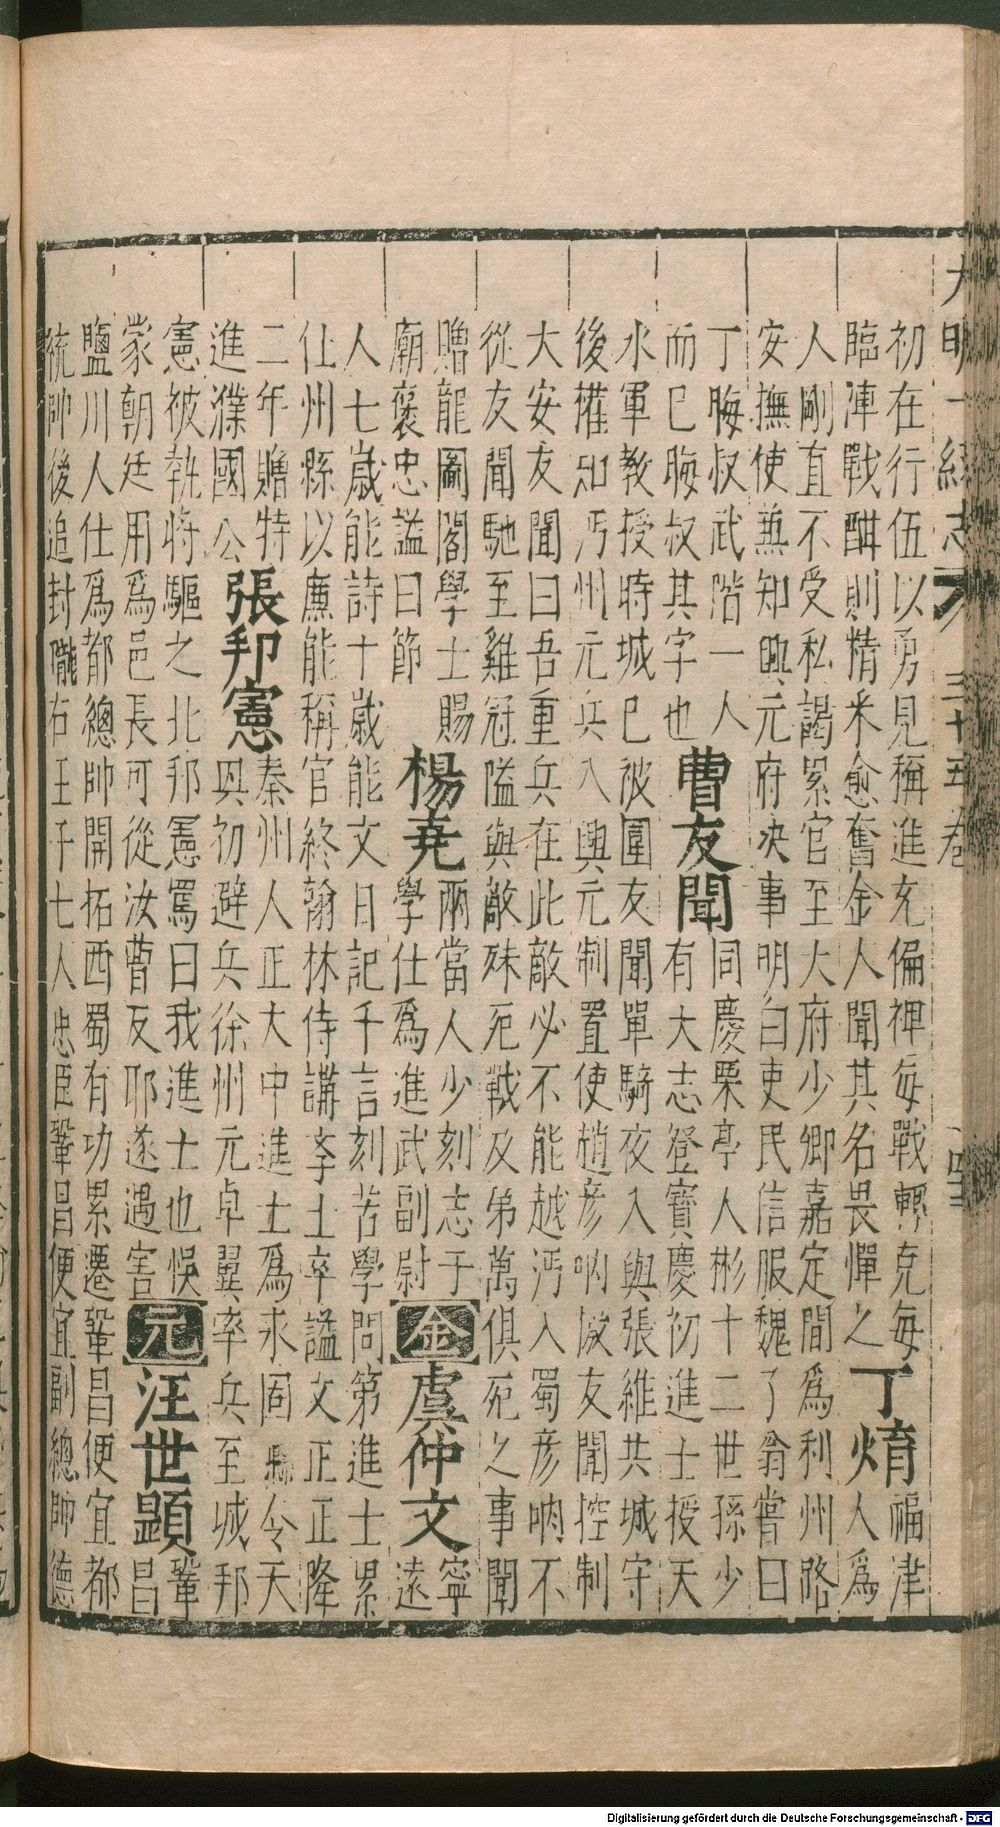 大明一統志 三十五卷
初在行伍以勇見稱進充偏裨每戰輒克每
臨陣戰酣則精采愈奮金人聞其名畏憚之
丁焴
福津
人爲
人剛直不受私謁累官至大府少卿嘉定間爲利州路
安撫使兼知興元府决事明白吏民信服魏了翁嘗曰
丁晦叔武階一人
而已晦叔其字也
曹友聞
同慶栗亭人彬十二世孫少
有大志登寶慶初進士授天
水軍教授時城已被圍友聞單騎夜入與張維共城守
後權知沔州元兵入興元制置使趙彥吶檄友聞控制
大安友聞曰吾重兵在此敵必不能越沔入蜀彥吶不
從友聞馳至雞冠隘與敵殊死戰及弟萬俱死之事聞
贈龍圖閣學士賜
廟褒忠謚曰節
楊堯
兩當人少刻志于
學仕爲進武副尉
金
虞仲文
寧
遠
人七歲能詩十歲能文日記千言刻苦學問第進士累
仕州縣以廉能稱官終翰林侍講學士卒謚文正正隆
二年贈特
進濮國公
張邦憲
秦州人正大中進士爲永固縣令天
興初避兵徐州元卓翼率兵至城邦
憲被執將驅之北邦憲罵曰我進士也悞
蒙朝廷用爲邑長可從汝曹反耶遂遇害
元
汪世顕
鞏
昌
鹽川人仕爲都總帥開拓西蜀有功累遷鞏昌便宜都
統帥後追封隴右王子七人忠臣鞏昌便宜副總帥德
Digitalisierung gefördert durch die Deutsche Forschungsgemeinschaft - DFG